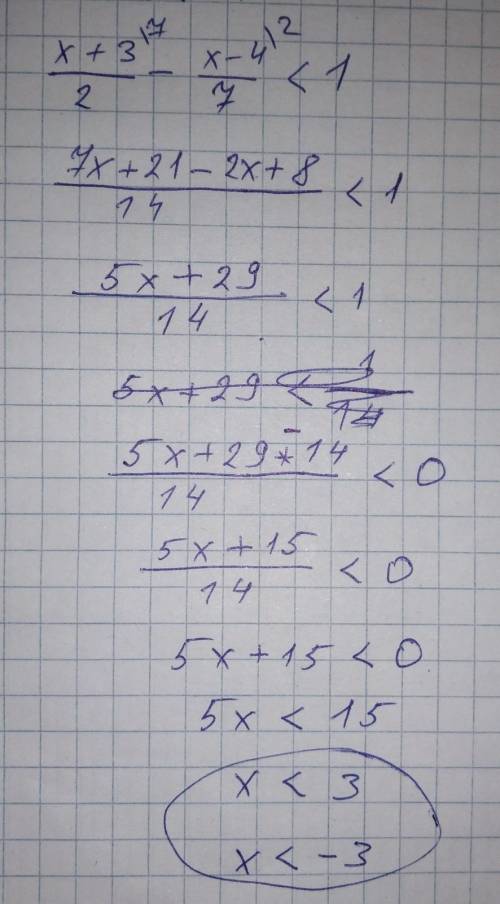 (x + 3)\7 / 2 − (x − 4)\2 / 7 < 1
(7x + 21 − 2x + 8) / 14 < 1
(5x + 29) / 14 < 1
5x + 29 < 1/14
(5x + 29 − 14) / 14 < 0
(5x + 15) / 14 < 0
5x + 15 < 0
5x < 15
x < 3
x < −3